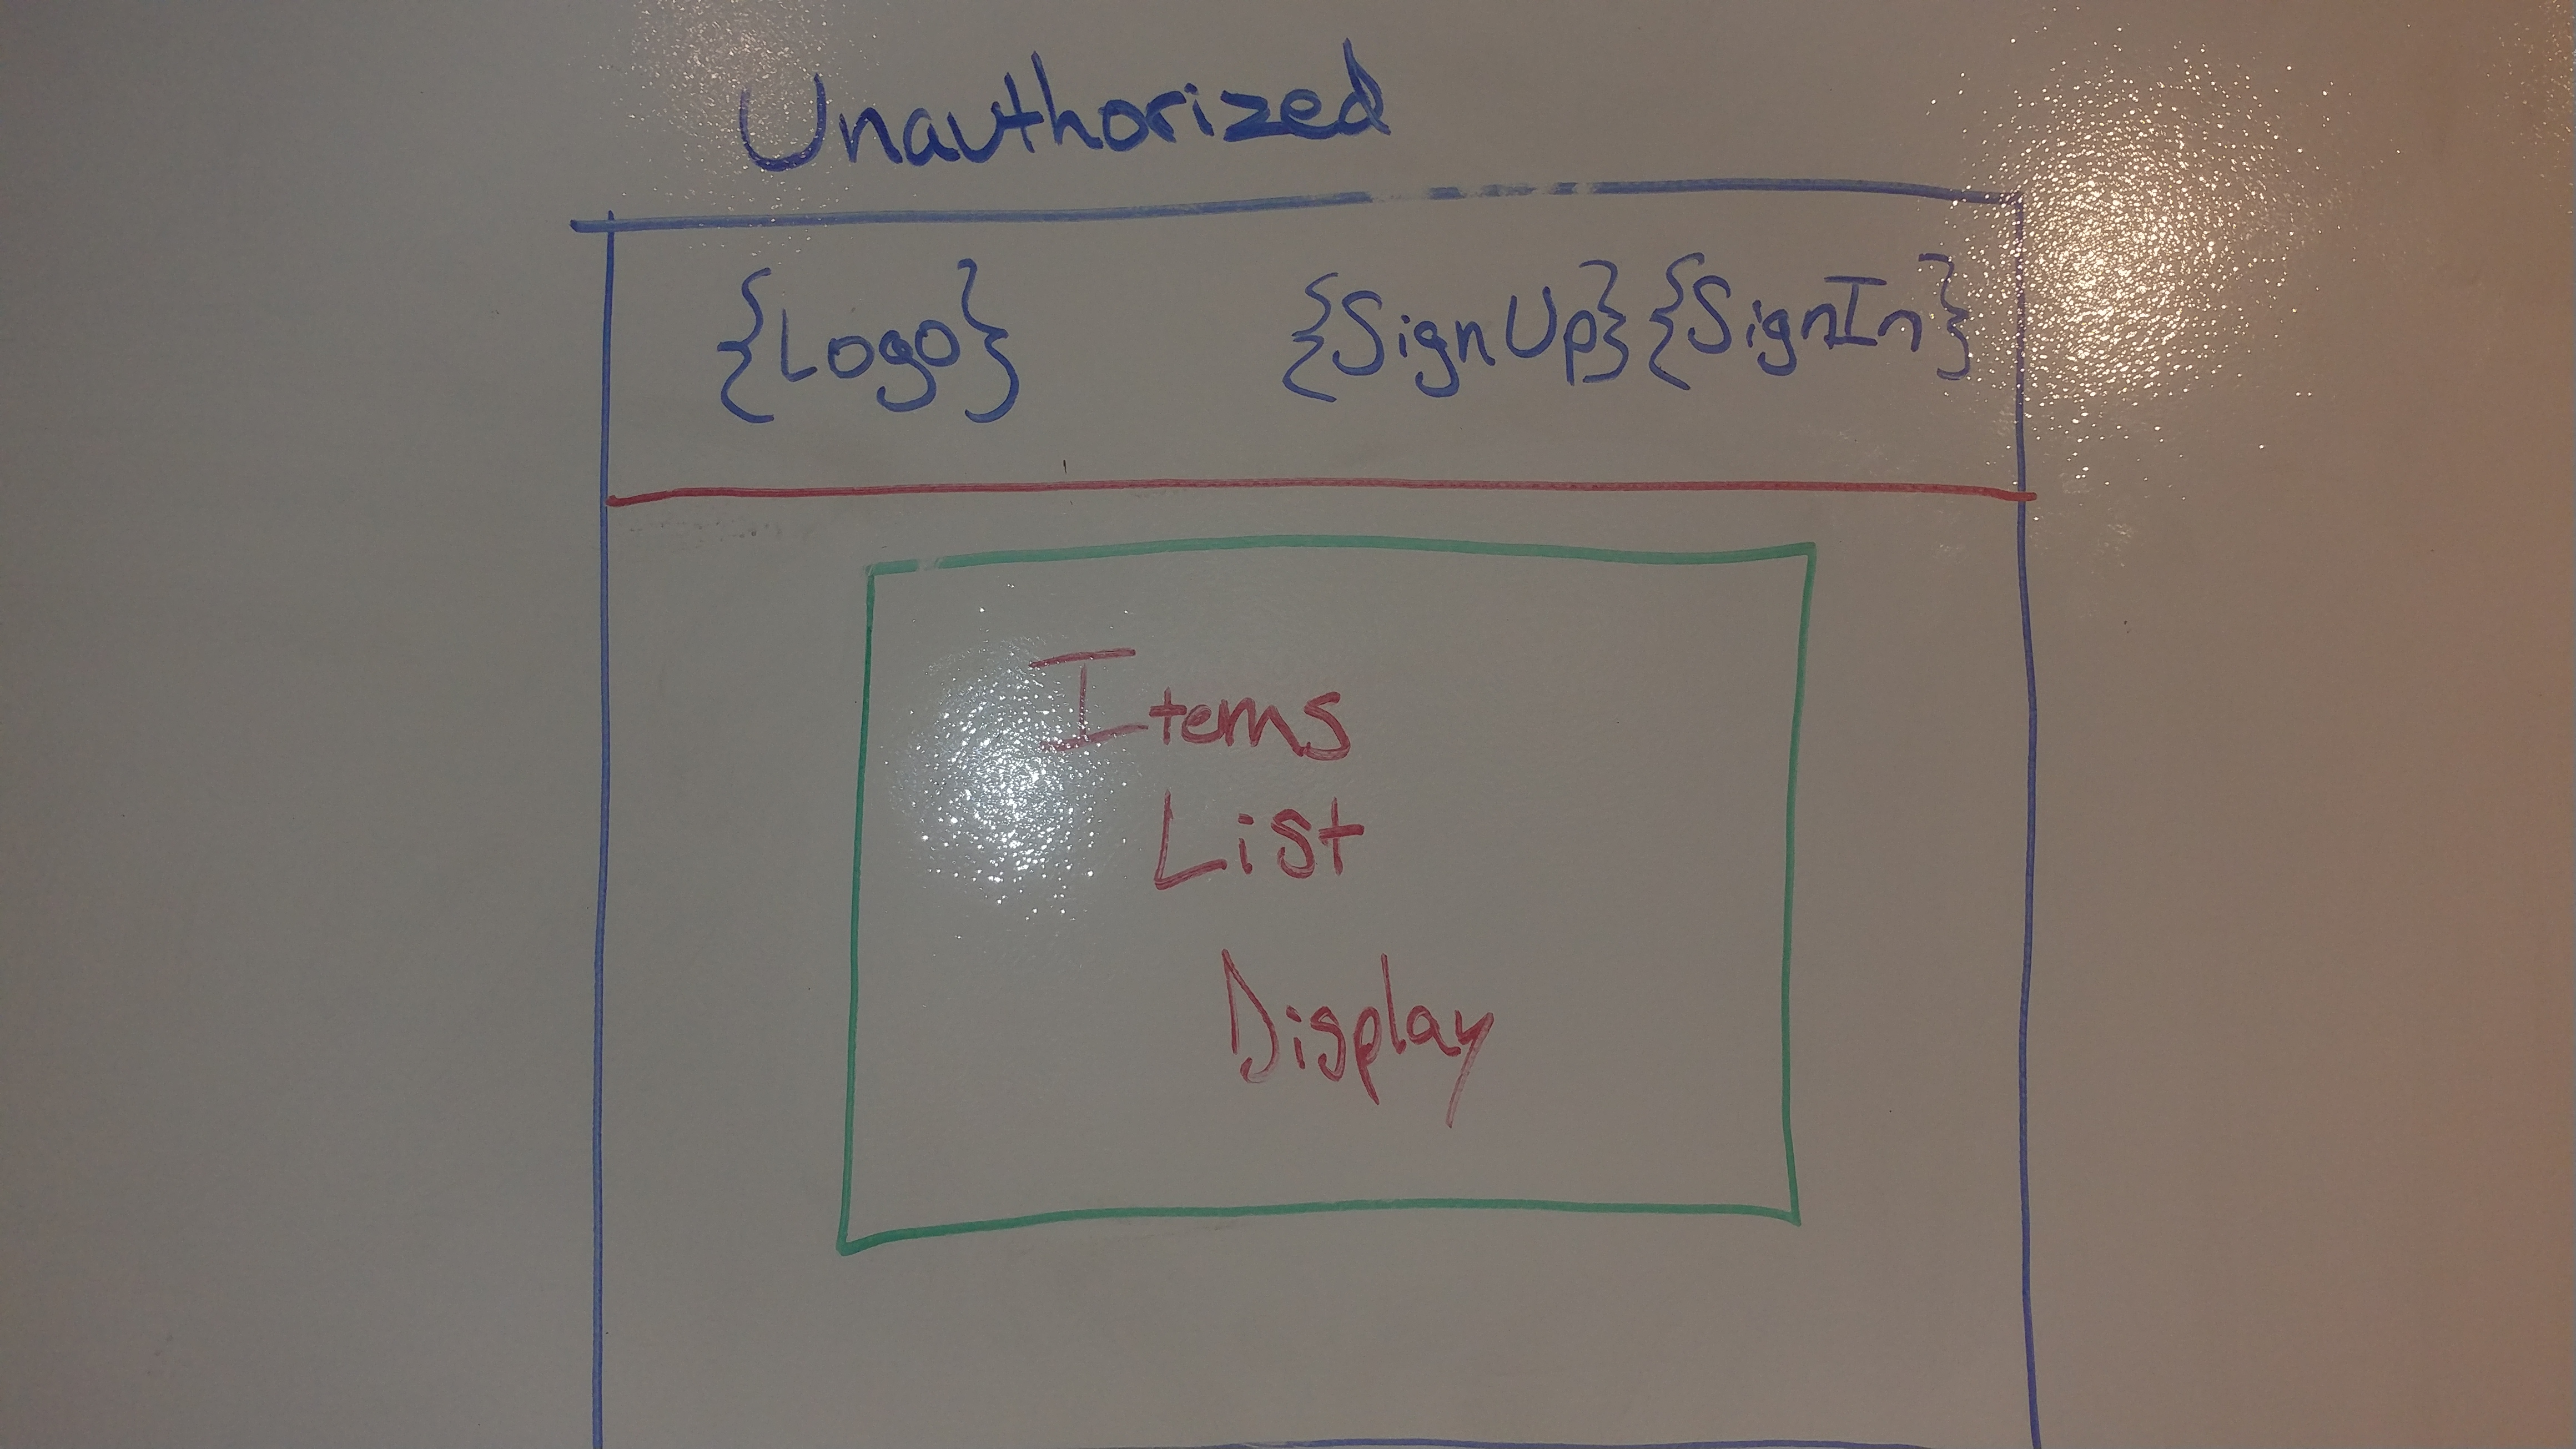 Unauthorized
{Logo} {SignUp} {SignIn}
Items
List
Display